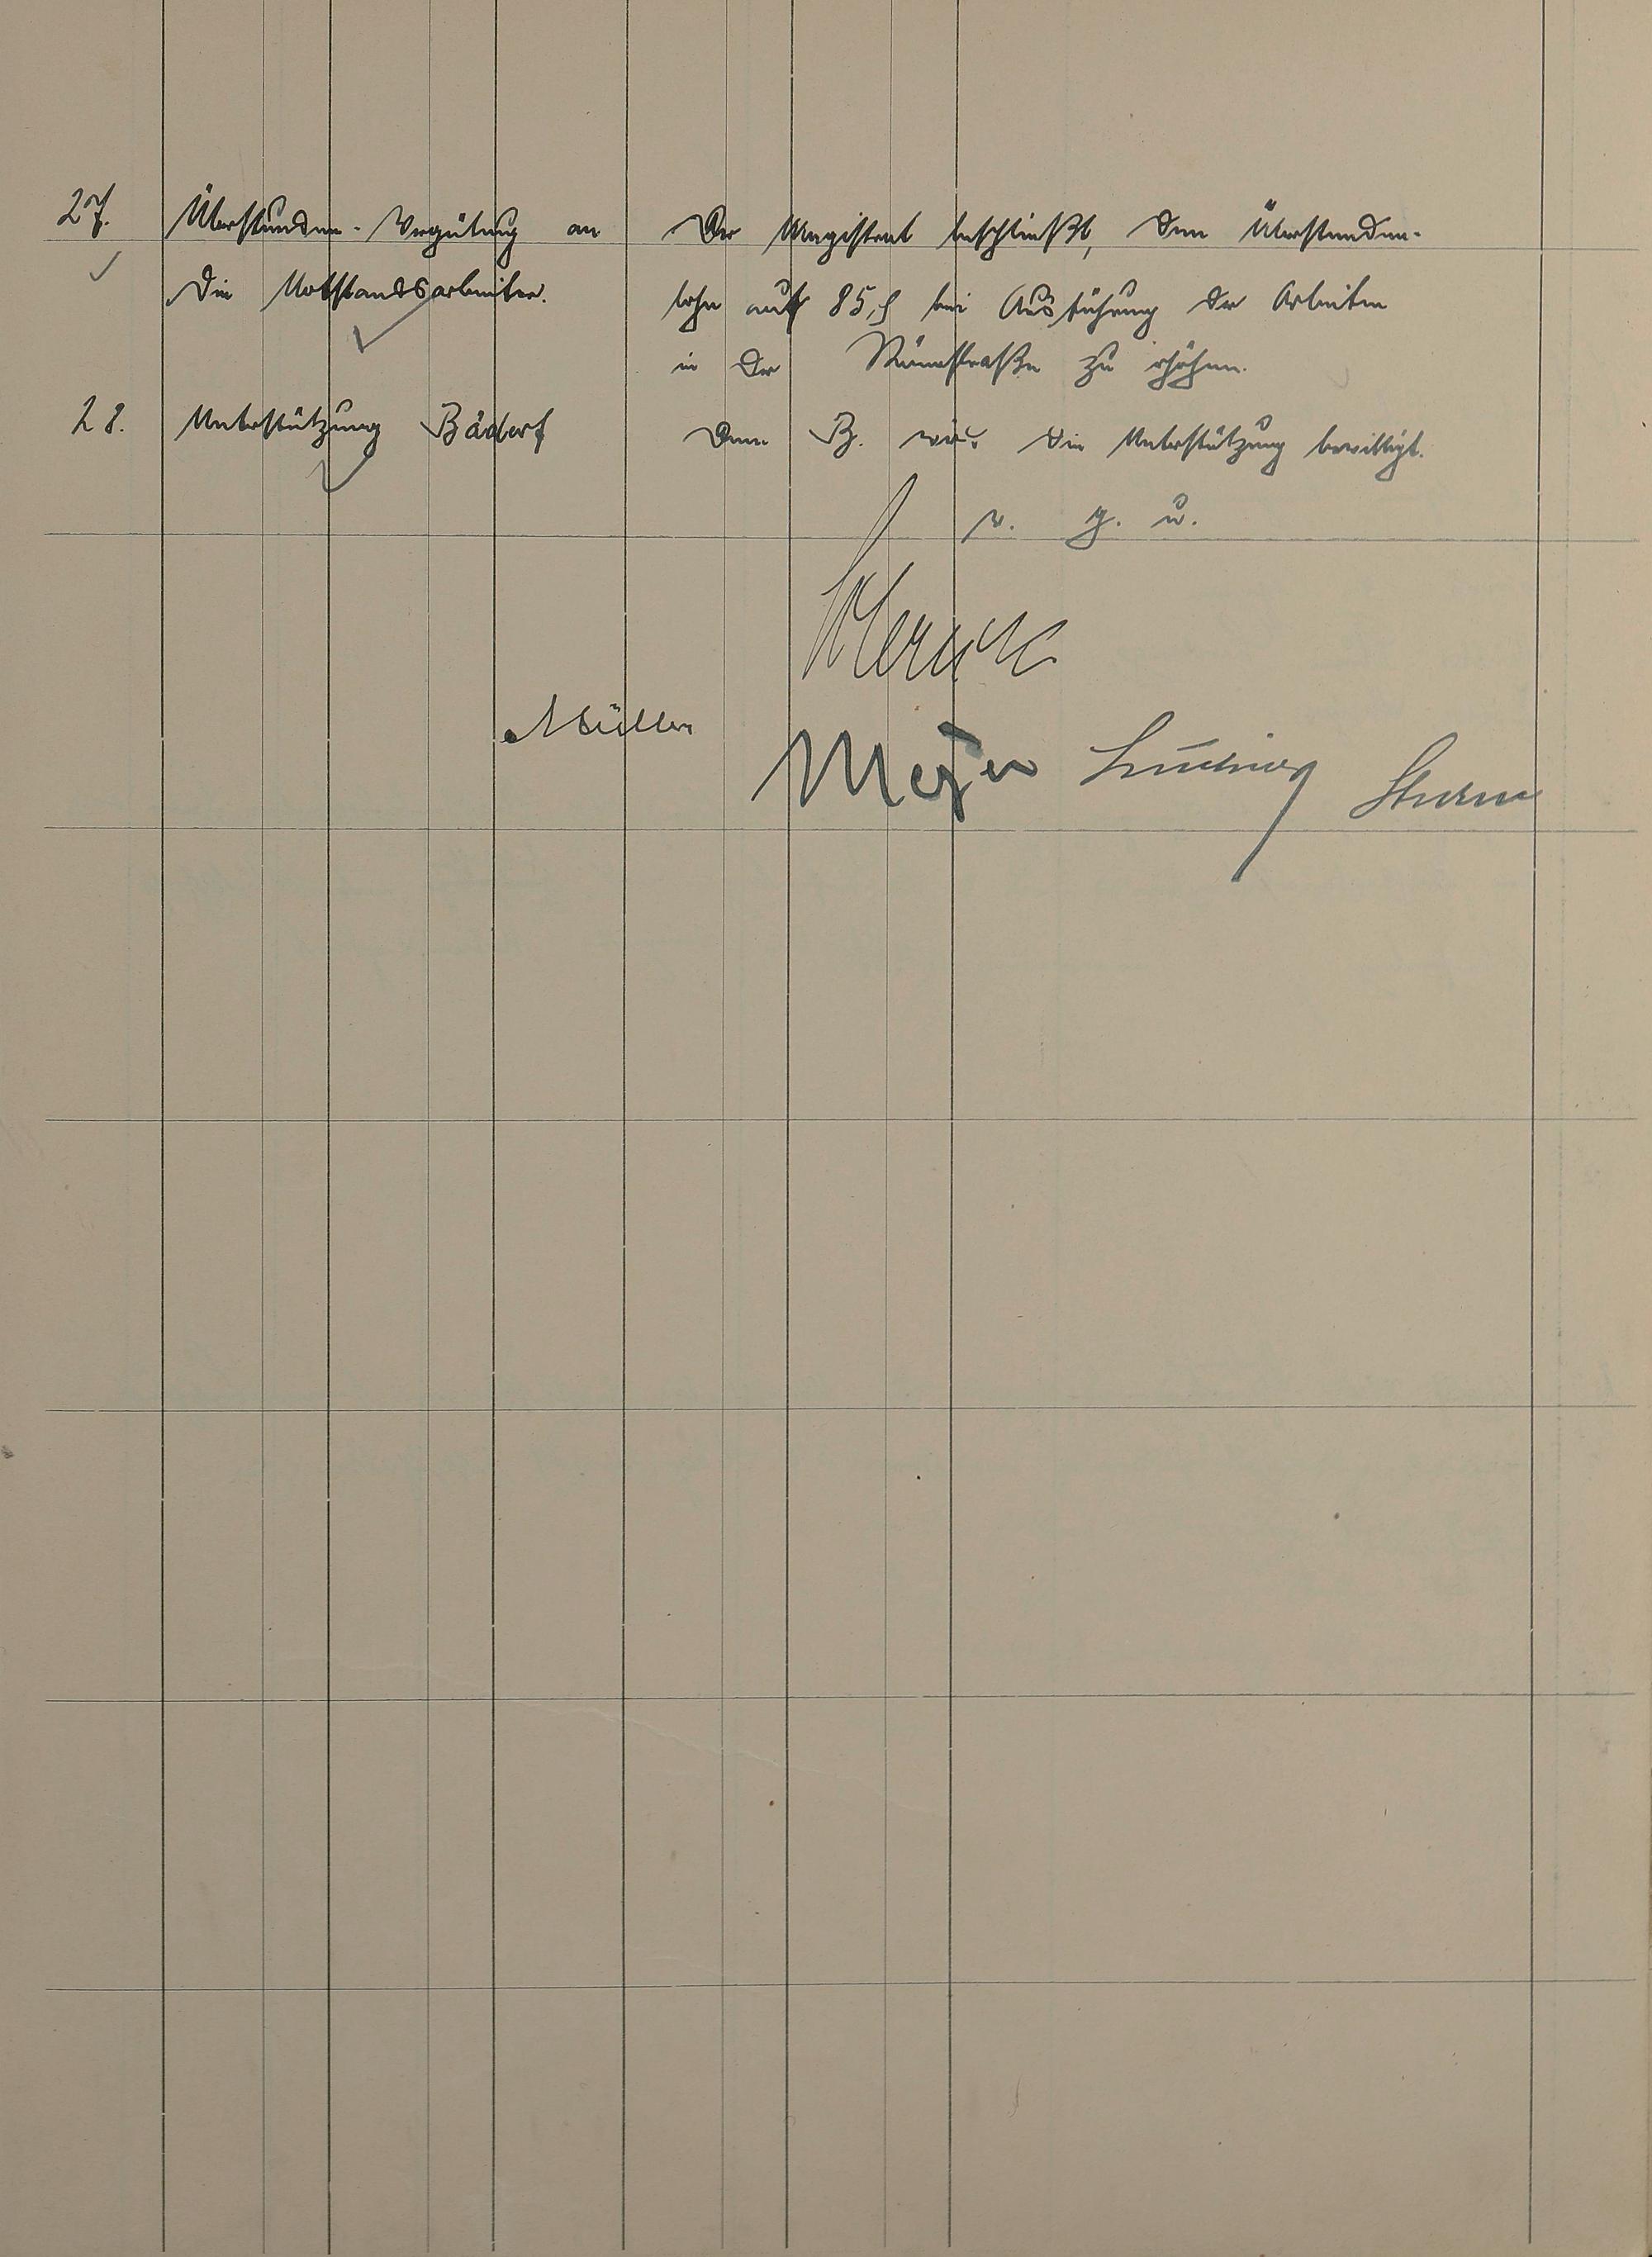 27. Überstunden-Vergütung an
die Notstandsarbeiter.
Der Magistrat beschließt, den Überstunden-
lohn auf 85,₰ bei Ausführung der Arbeiten
in der zu erhöhen.
28. Unterstützung Bädorf
Dem B. wird die Unterstützung bewilligt.
v. g. u.
Müller
Meyer
Sturm